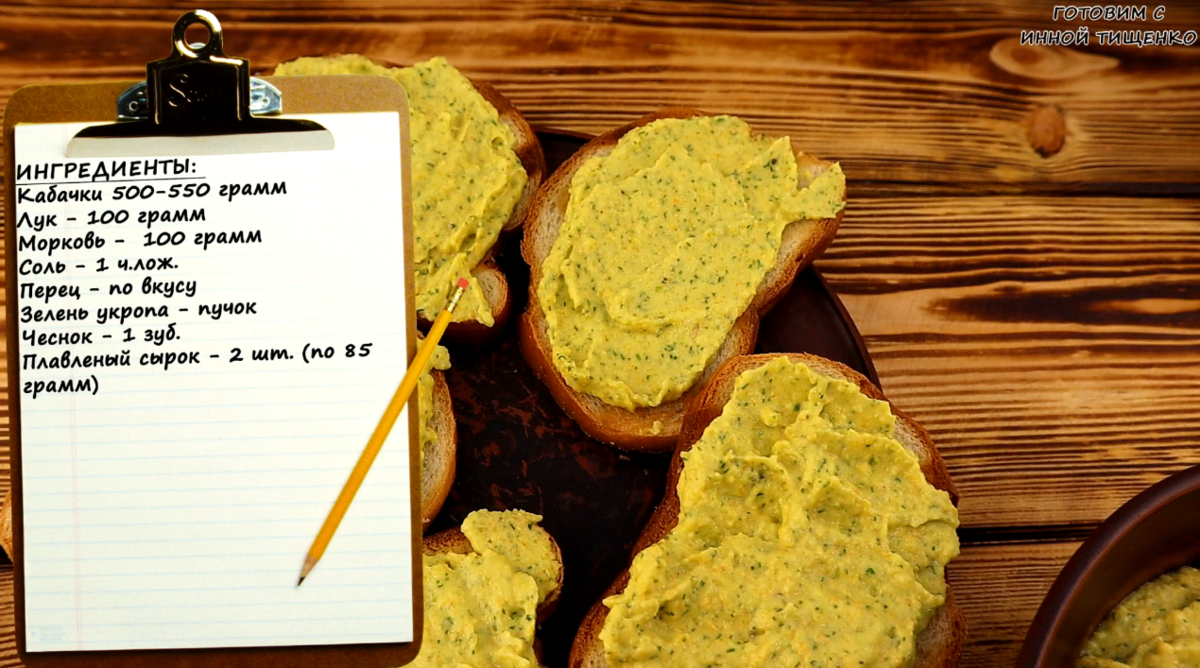 ГОТОВИМ С
ИННОЙ ТИЩЕНКО
ИНГРЕДИЕНТЫ:
Кабачки 500-550 грамм
Лук - 100 грамм
Морковь - 100 грамм
Соль - 1 ч.лож.
Перец - по вкусу
Зелень укропа - пучок
Чеснок - 1 зуб.
Плавленый сырок - 2 шт. (по 85
грамм)